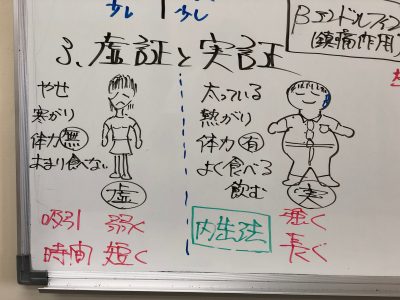 少し
少し
βエンドルフィン
(鎮痛作用)
3、虚証と実証
やせ
寒がり
体力 無
あまり食べない
虚
太っている
熱がり
体力 有
よく食べる
飲む
実
吸引 弱く
時間 短く
内生法
強く
長く